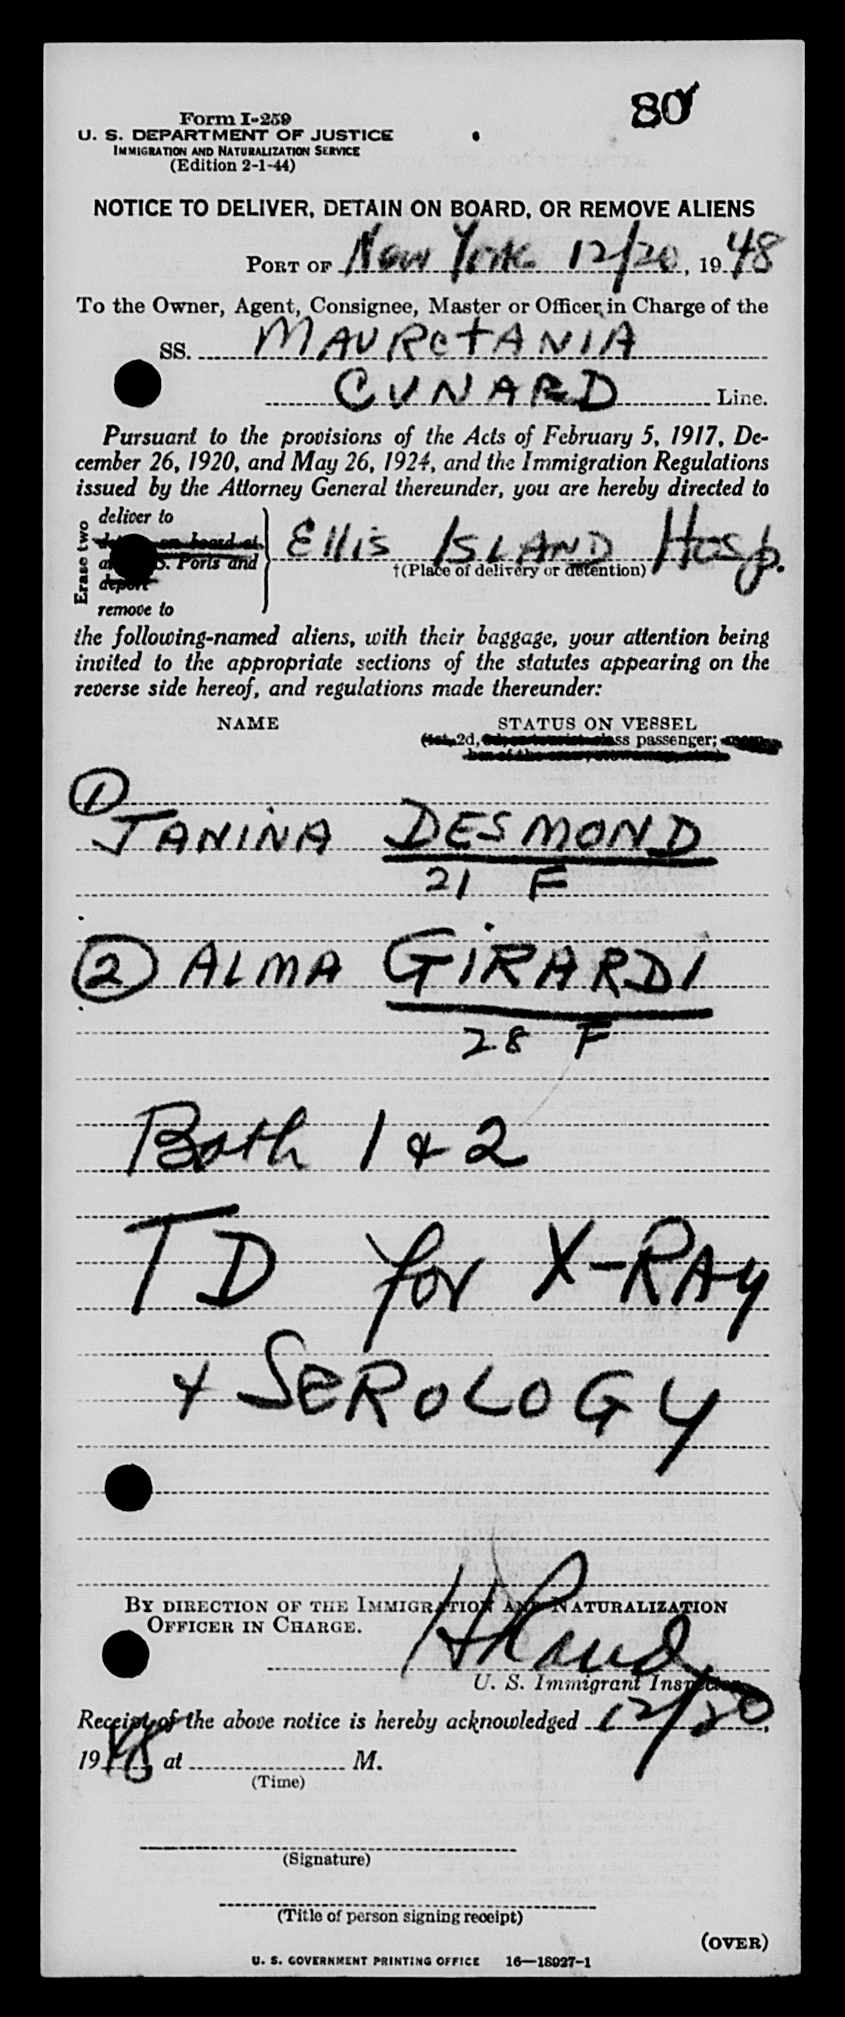 80
Form I-259
U. S. DEPARTMENT OF JUSTICE
IMMIGRATION AND NATURALIZATION SERVICE
(Edition 2-1-44)
NOTICE TO DELIVER, DETAIN ON BOARD, OR REMOVE ALIENS
PORT OF New York 12/20, 1948
To the Owner, Agent, Consignee, Master or Officer in Charge of the
SS. MAUReTANIA
CUNARD Line.
Pursuant to the provisions of the Acts of February 5, 1917, De-
cember 26, 1920, and May 26, 1924, and the Immigration Regulations
issued by the Attorney General thereunder, you are hereby directed to
Erase two
deliver to
detain on board at
Ports and
deport
remove to
Ellis ISLAND Hosp.
†(Place of delivery or detention)
the following-named aliens, with their baggage, your attention being
invited to the appropriate sections of the statutes appearing on the
reverse side hereof, and regulations made thereunder:
NAME STATUS ON VESSEL
(1st, 2d, class passenger;
1
JANINA DESMOND
21 F
2 ALMA GIRARDI
28 F
Both 1 & 2
TD for X-RAy
+ SEROLOGY
BY DIRECTION OF THE IMMIGRATION AND NATURALIZATION
OFFICER IN CHARGE.
U. S. Immigrant Inspector
Receipt of the above notice is hereby acknowledged 12/20,
1948 at M.
(Time)
(Signature)
(Title of person signing receipt)
(OVER)
U. S. GOVERNMENT PRINTING OFFICE 16—18027-1